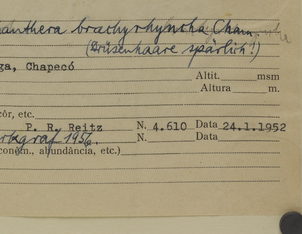 anthera brachyrhyncha Cham.
(Drüsenhaare spärlich!)
ga, Chapecó
Altit. msm
Altura m.
côr, etc.
P. R. Reitz N. 4.610 Data 24.1.1952
1956. N. Data
conêm., abundância, etc.)